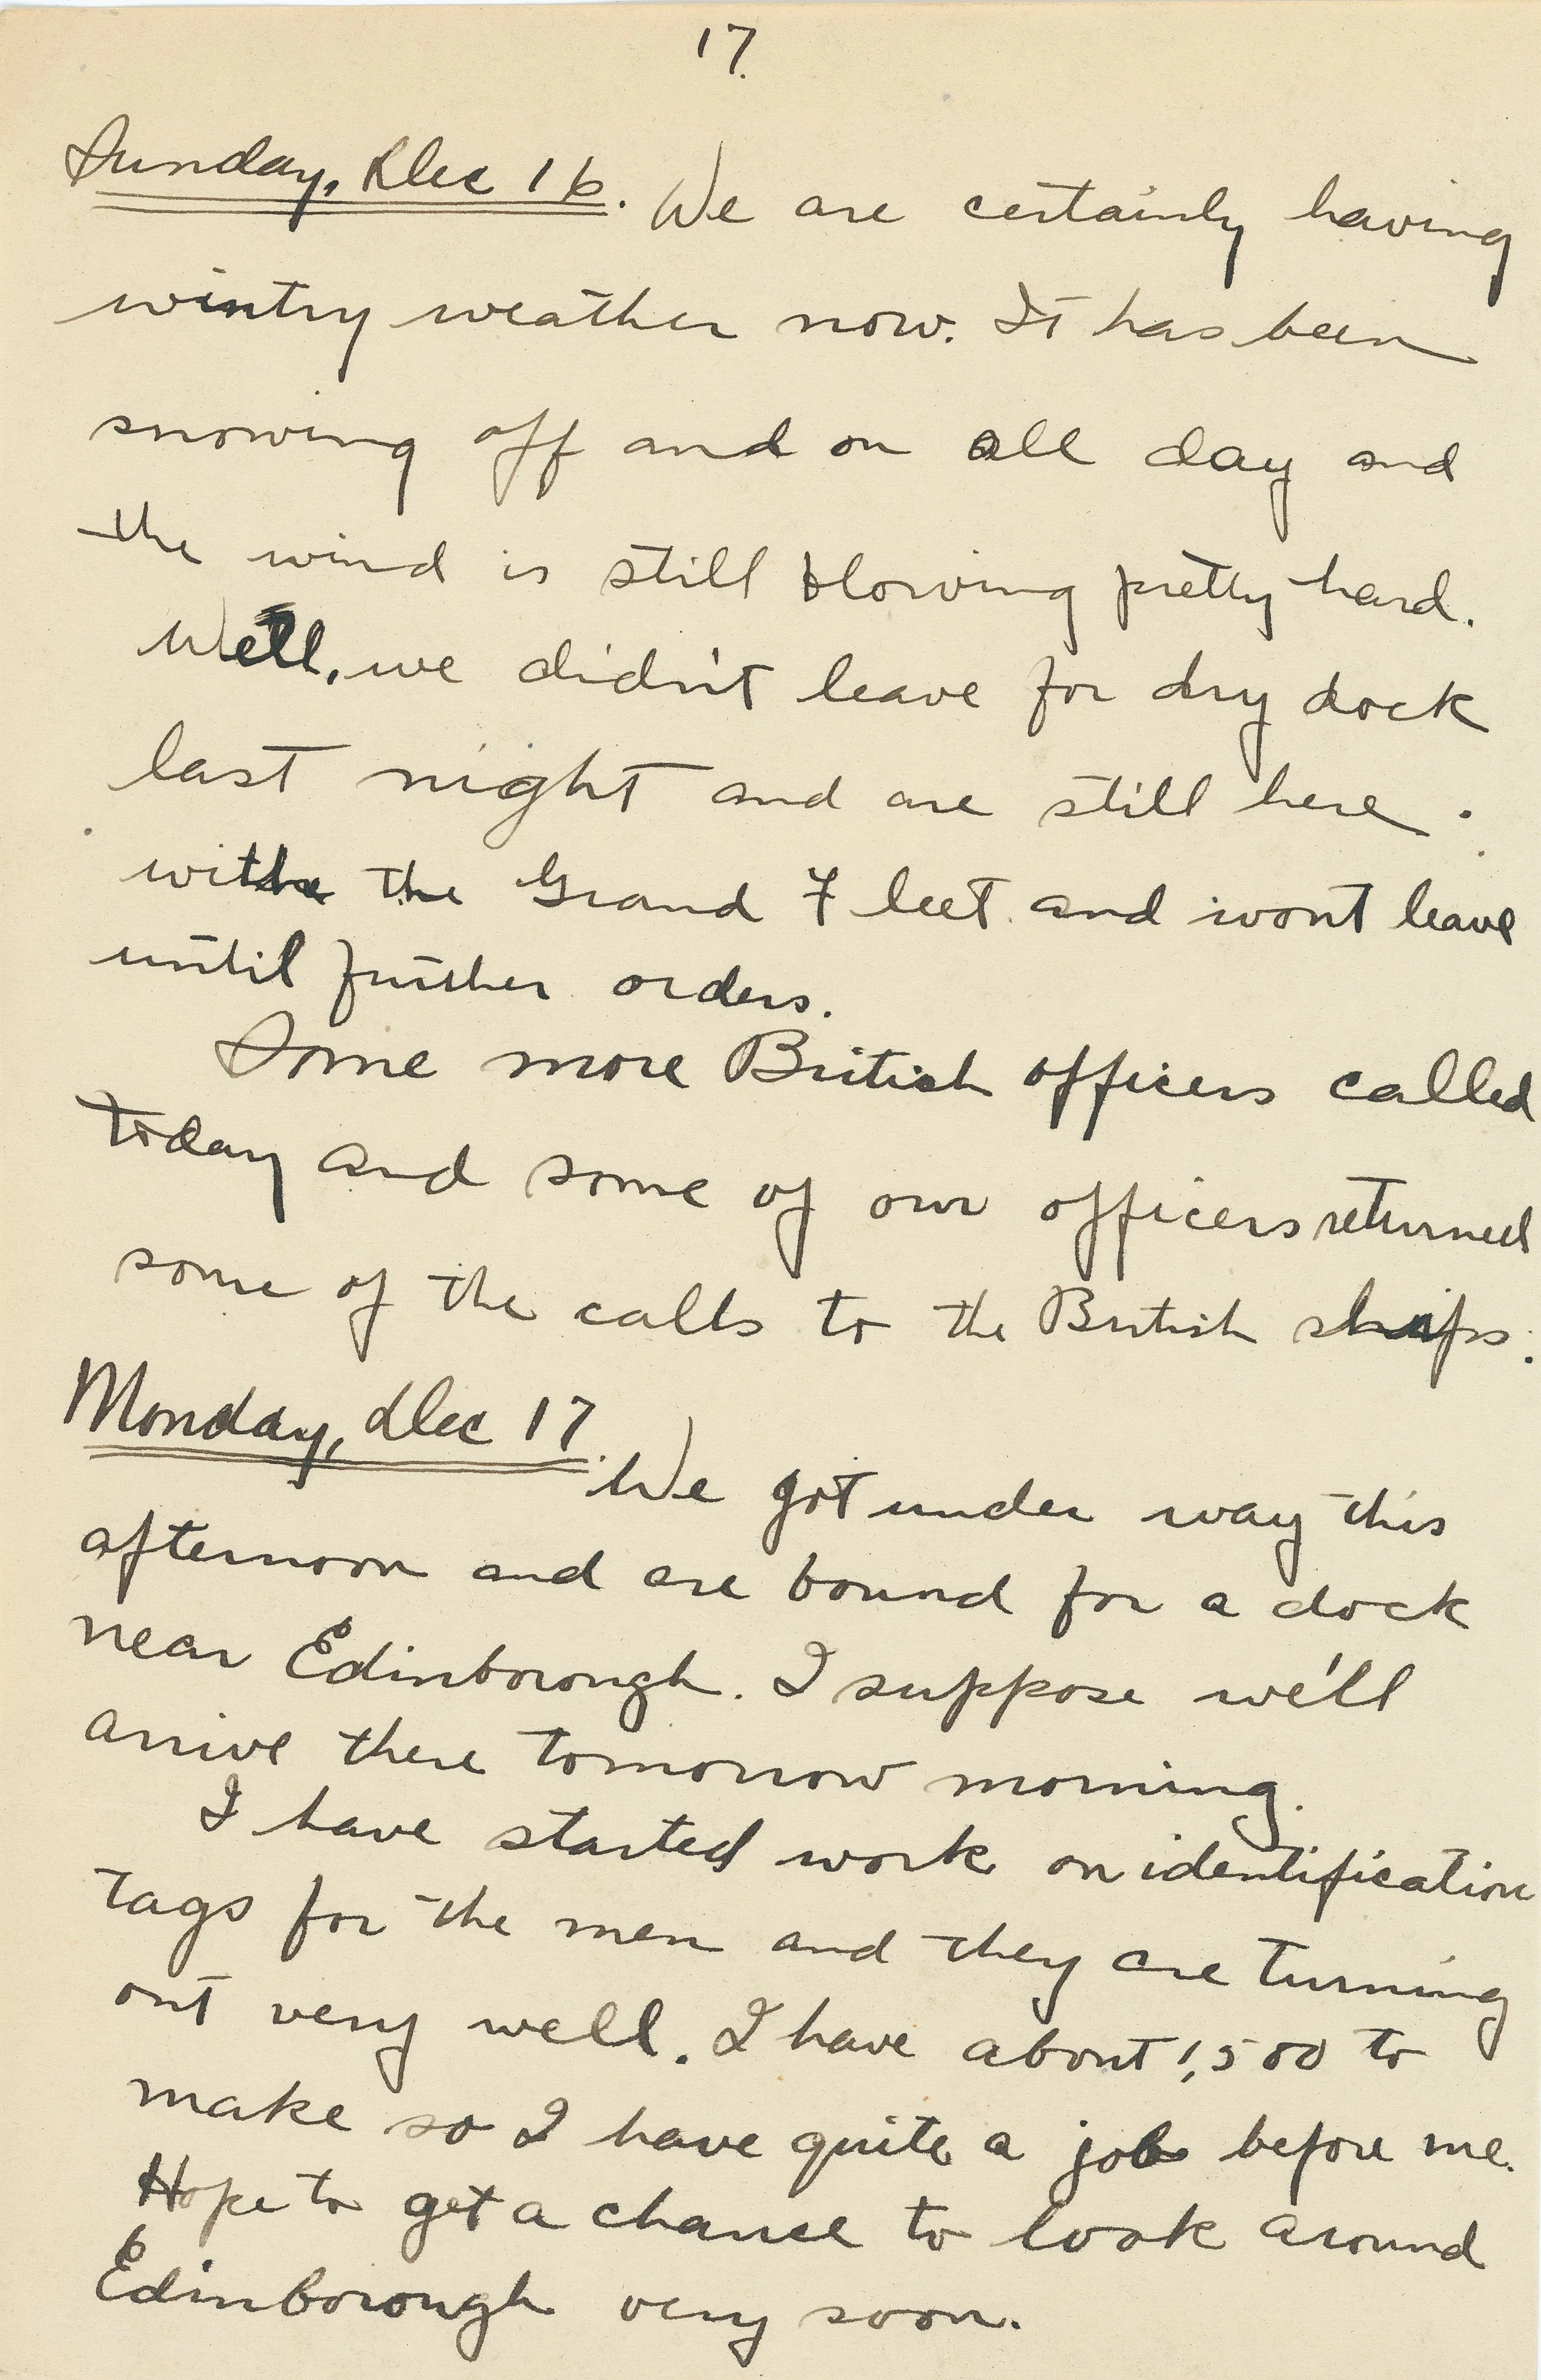 17.
Sunday, Dec 16. We are certainly having
wintry weather now. It has been
snowing off and on all day and
the wind is still blowing pretty hard.
Well, we didn't leave for dry dock
last night and are still here.
with the Grand Fleet and wont leave
until further orders.
Some more British officers called
today and some of our officers returned
some of the calls to the British ships.
Monday, Dec 17. We got under way this
afternoon and are bound for a dock
near Edinborough. I suppose we'll
arrive there tomorrow morning.
I have started work on identification
tags for the men and they are turning
out very well. I have about 1,500 to
make so I have quite a job before me.
Hope to get a chance to look around
Edinborough very soon.